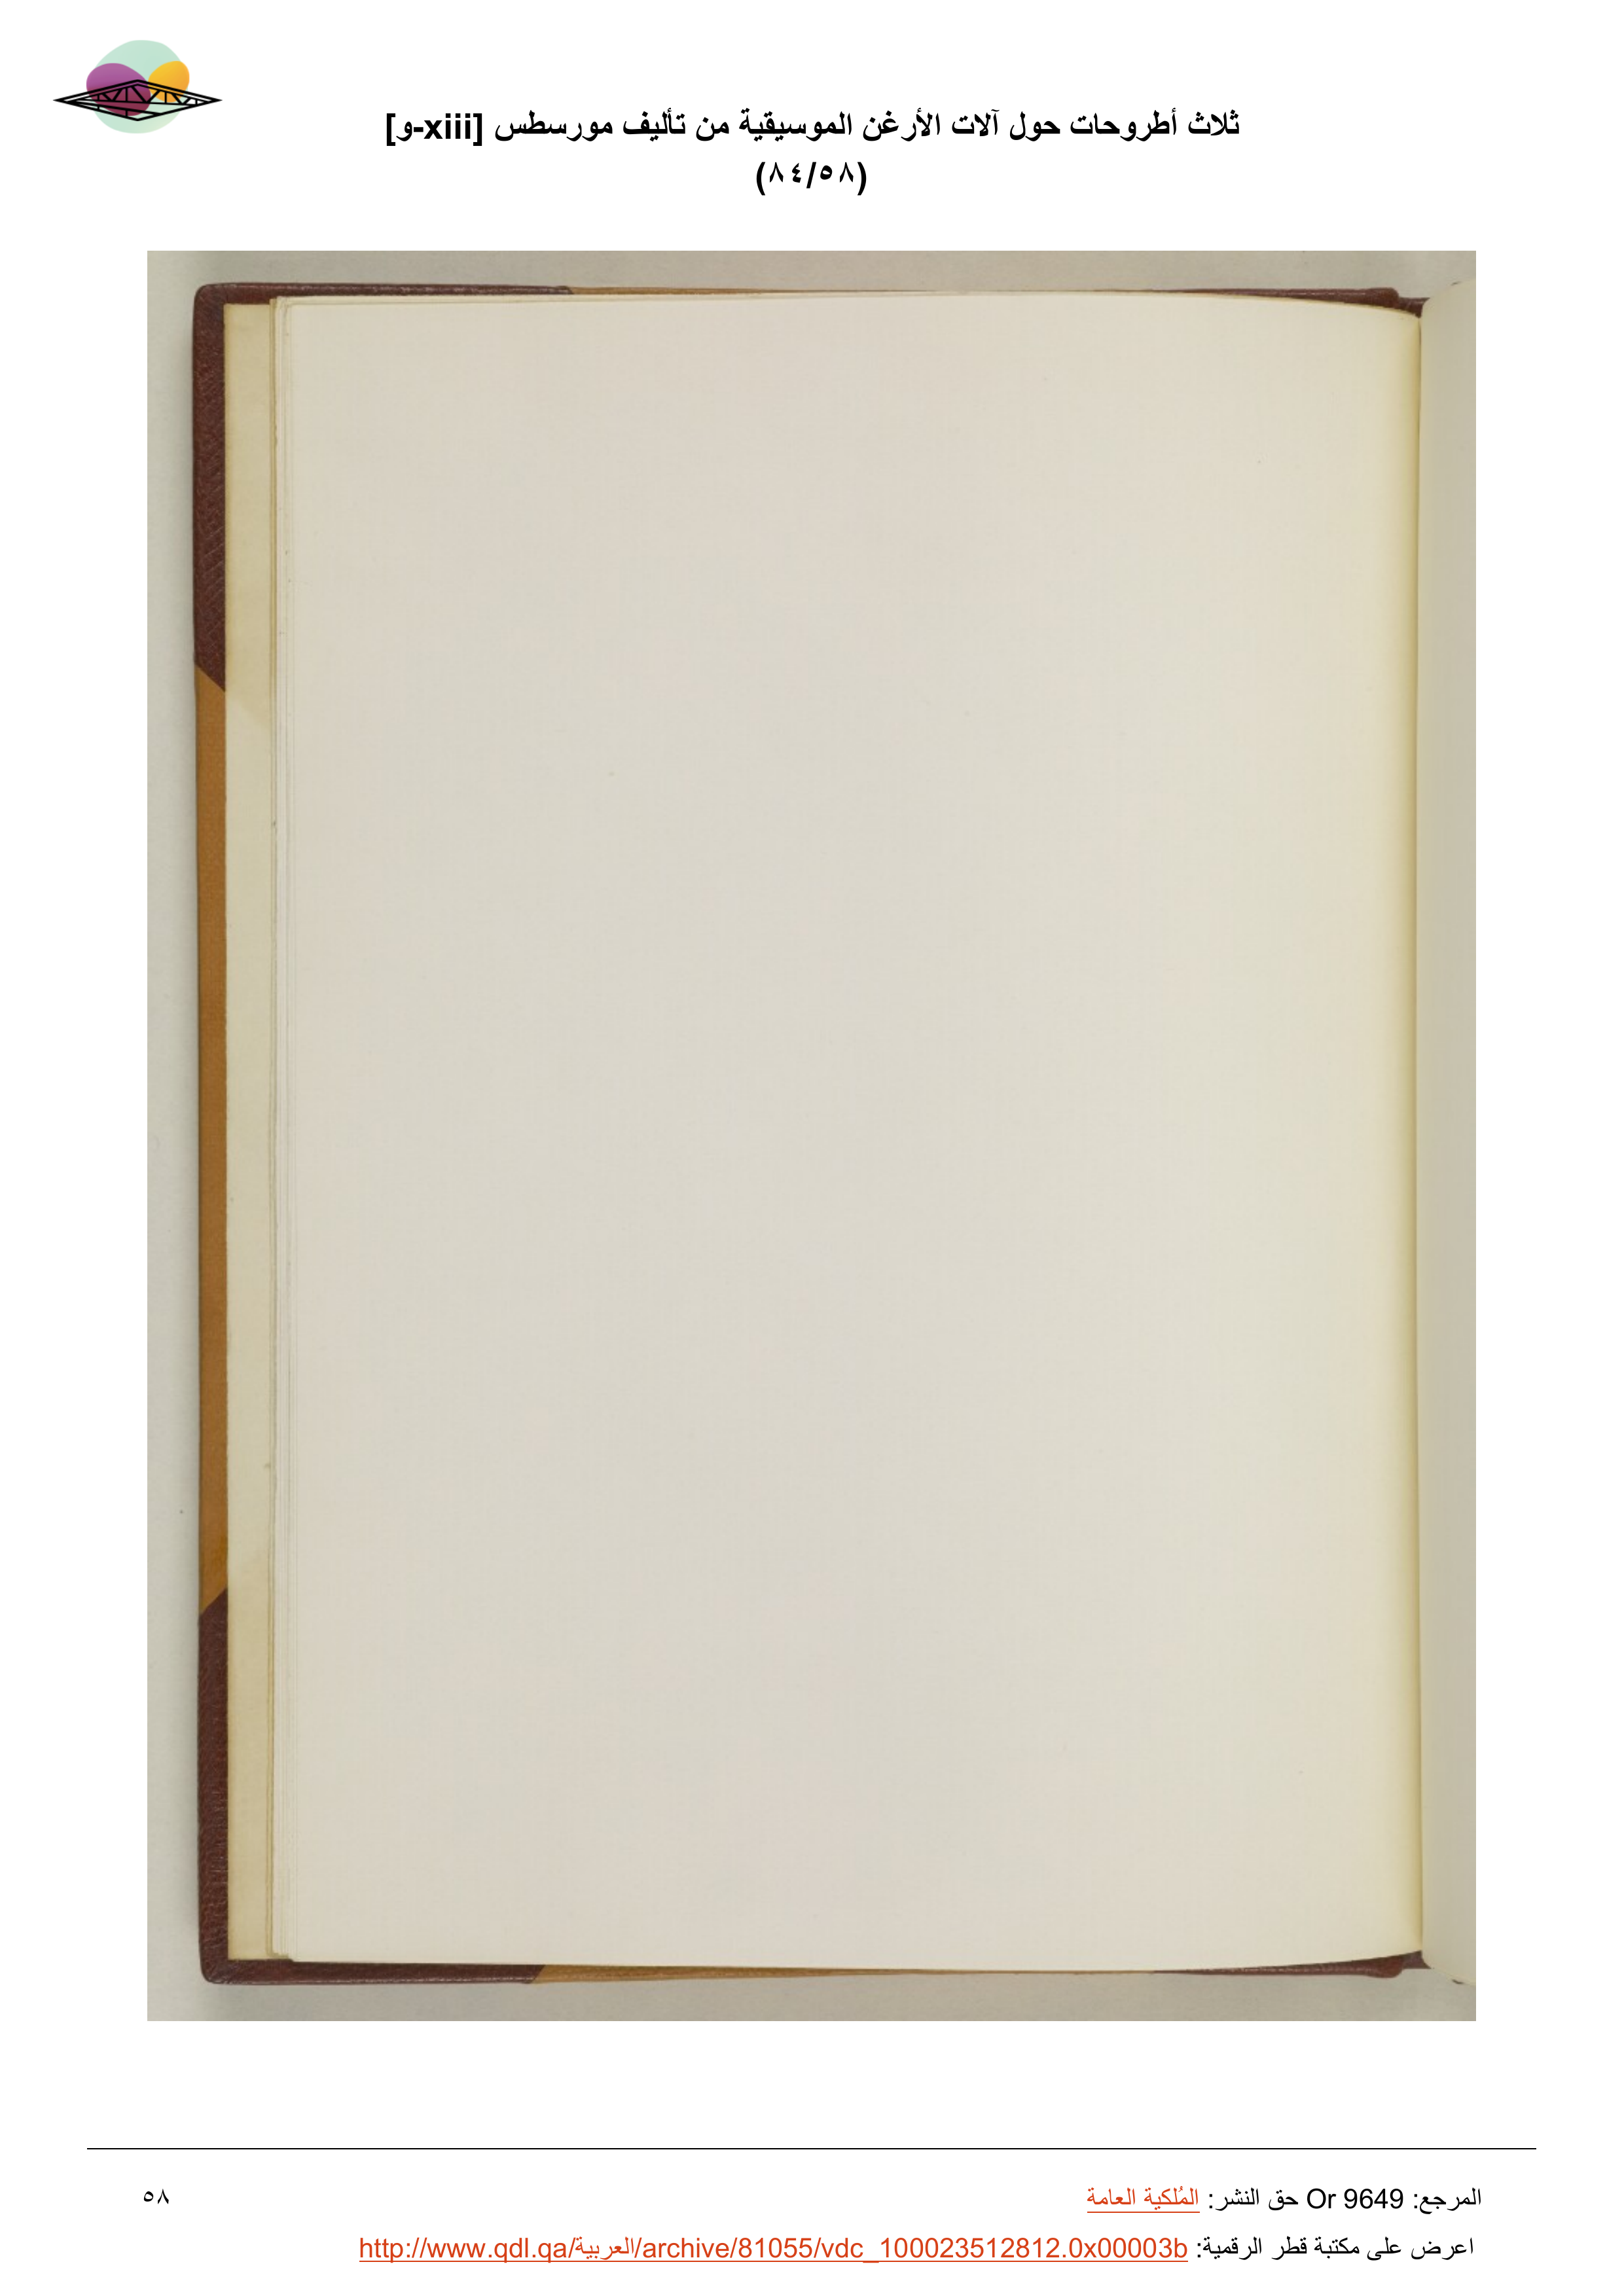 ثلاث أطروحات حول آلات الأرغن الموسيقية من تأليف مورسطس [xiii-و]
(٨٤/٥٨)
المرجع: Or 9649 حق النشر: المُلكية العامة
٥٨
اعرض على مكتبة قطر الرقمية: http://www.qdl.qa/العربية/archive/81055/vdc_100023512812.0x00003b